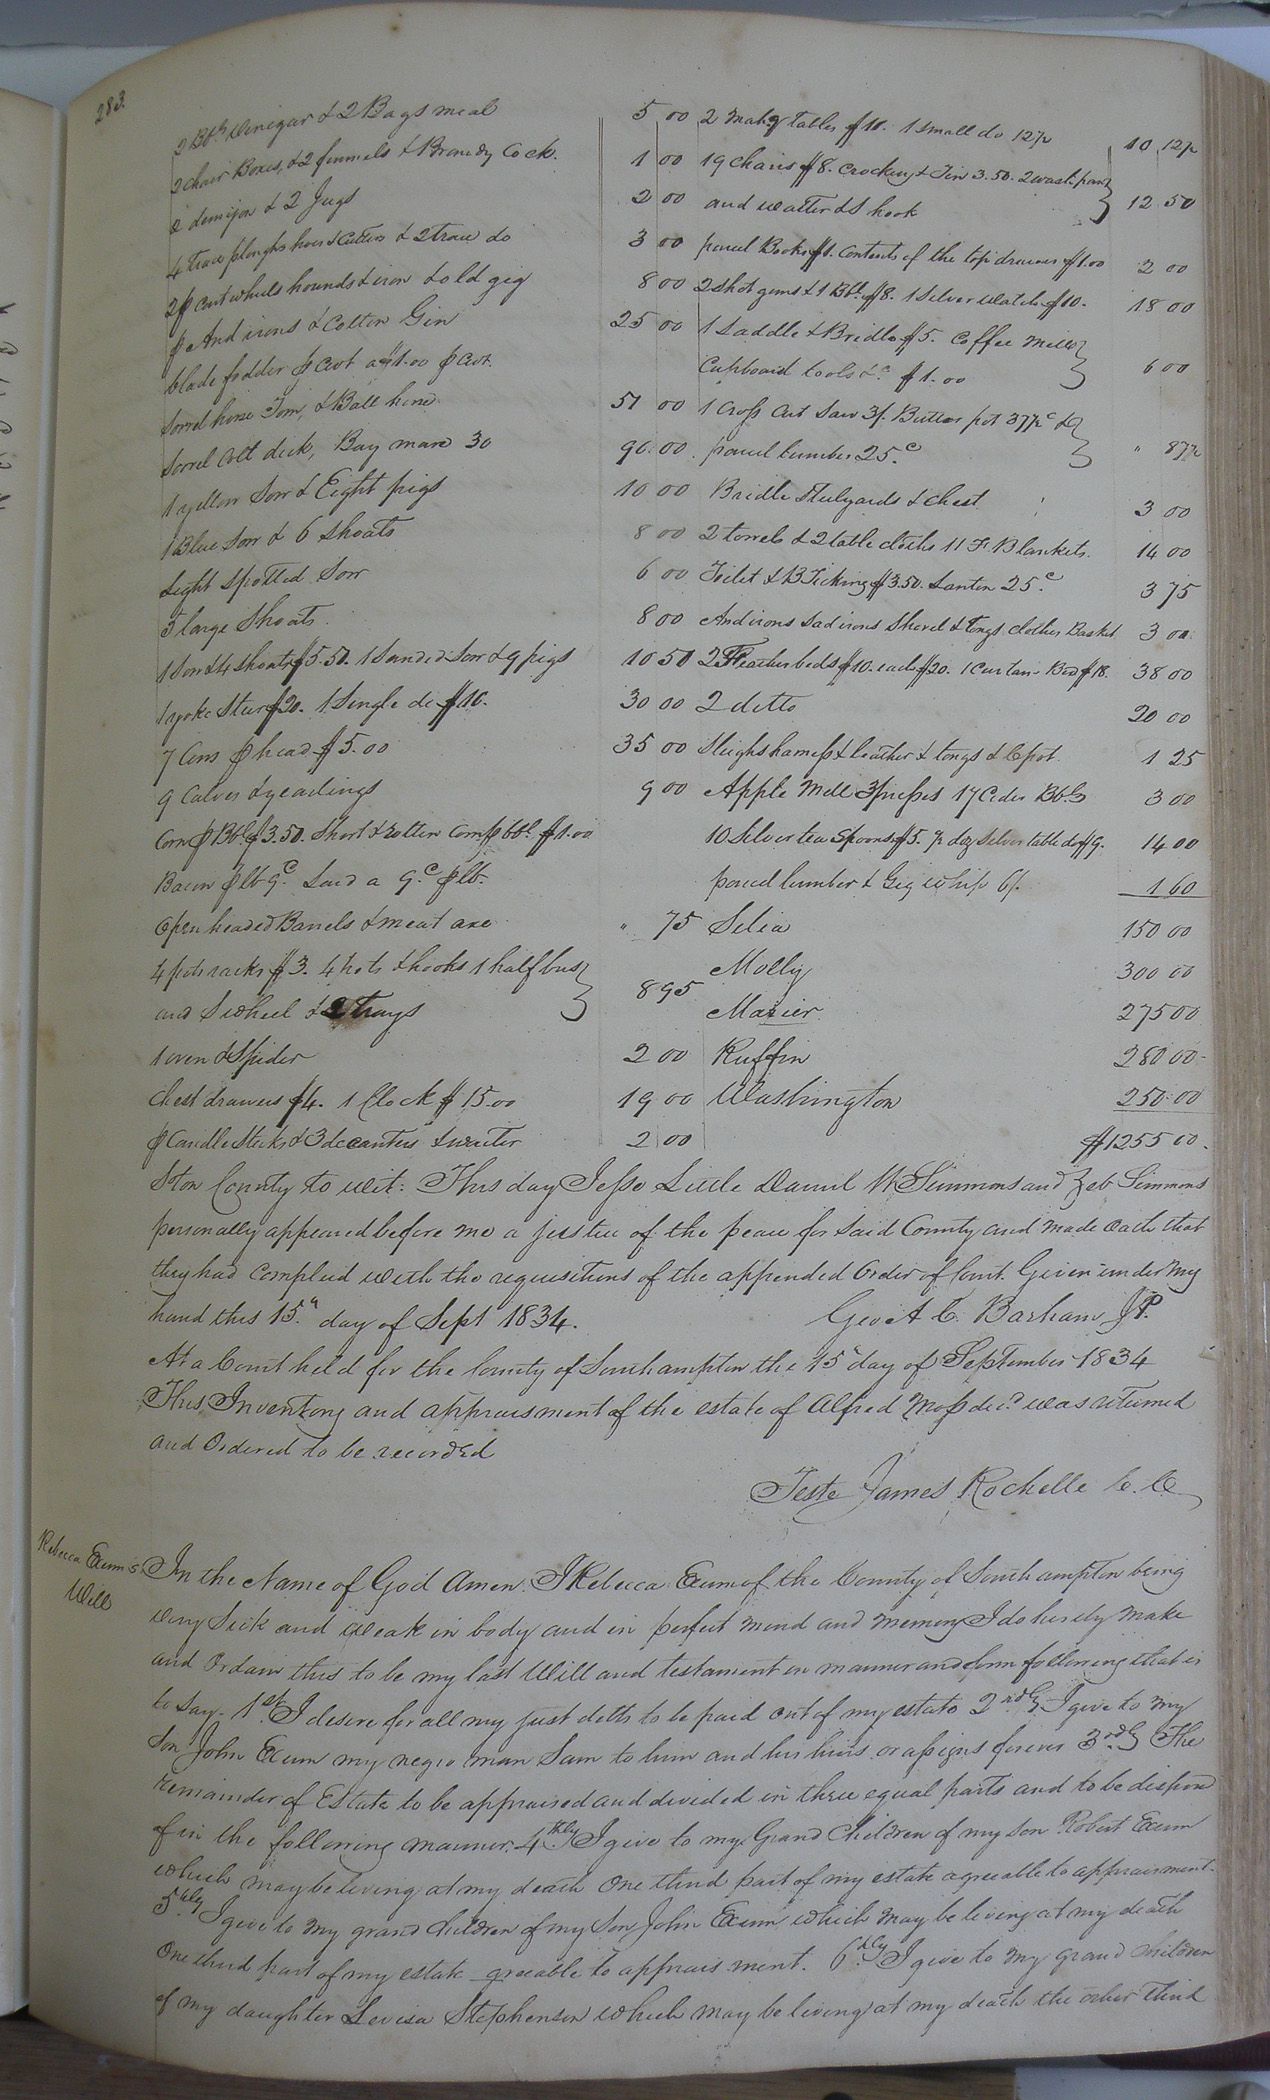 283
2 Bbls Vinegar & 2 Bags meal 5 00
2 chair Boxes, & 2 funnels & Brandy Cock. 1 00
2 demijon & 2 Jugs 2 00
4 trace ploughs hoes & Cutters & 2 trace do 3 00
2 p cart wheels hounds & iron & old gig 8 00
p And irons & Cotton Gin 25 00
blade fodder p Cwt a $1.00 p Cwt.
Sorrel horse Tom, & Ball horse 51 00
Sorrel Colt dick, Bay mare 30 90.00
1 yellow Sow & Eight pigs 10 00
1 Blue Sow & 6 Shoats 8 00
Light Spotted Sow 6 00
5 large Shoats 8 00
1 Sow & 4 Shoats $5.50. 1 Sanded Sow & 9 pigs 10 50
1 yoke Steers $20. 1 Single do $10. 30 00
7 Cows p head $5.00 35 00
9 Calves & yearlings 9 00
Corn p Bbl $3.50. Short & Rotten Corn p bbl $1.00
Bacon p lb 9c. Lard a 9c p lb.
Open headed Barrels & meat axe " 75
4 pots racks $3. 4 hoes & hooks 1 half bus }
and S wheel & 2 trays } 8 95
1 oven & Spider 2 00
Chest drawers $4. 1 Clock $15.00 19 00
p Candle Sticks & 3 decanters & waiter 2 00
2 Mahg tables $10. 1 small do 12½ 10 12½
19 chairs $8. Crockery & Tin 3.50. 2 wash pans }
and waiter & S hook } 12 50
parcel Books $1. Contents of the top drawers $1.00 2 00
2 shot guns & 1 Bbl $8. 1 Silver Watch $10. 18 00
1 Saddle & Bridle $5. Coffee mill }
Cupboard tools &c $1.00 } 6 00
1 Cross Cut Saw 3/. Butter pot 37½c & }
parcel lumber 25.c } " 87½
Bridle Steelyards & chest 3 00
2 towels & 2 table cloths 11 F. Blankets. 14 00
Toilet & B Ticking $3.50. Lantern 25.c 3 75
Andirons Sad irons Shovel & tongs clothes Basket 3 00
2 Feather beds $10. each $20. 1 Curtain Bed $18. 38 00
2 ditto 20 00
Sleighs harness & leather & tongs & C pot. 1 25
Apple Mill 3 presses 17 Cider Bbls 3 00
10 Silver tea Spoons $5. ½ doz Silver table do $9. 14 00
parcel lumber & Gig whip 6/. 1 60
Selia 150 00
Molly 300 00
Mazier 275 00
Ruffin 280 00
Washington 250.00
$1255 00.
S'ton County to wit: This day Jesse Little Daniel W Simmons and Zeb Simmons
personally appeared before me a justice of the peace for said County and made oath that
they had complied with the requisitions of the appended Order of Court. Given under my
hand this 15h day of Sept 1834. Geo A C. Barham J.P.
At a Court held for the County of Southampton the 15h day of September 1834
This Inventory and appraisment of the estate of Alfred Moss decd was returned
and Ordered to be recorded
Teste James Rochelle C. C
Rebecca Exum's
Will
In the Name of God Amen. I Rebecca Exum of the County of Southampton being
very Sick and weak in body and in perfect mind and memory I do hereby make
and Ordain this to be my last Will and testament in manner and form following that is
to say. 1st I desire for all my just detts to be paid out of my estate 2ndly I give to my
Son John Exum my negro man Sam to him and his heirs or assigns forever 3rdly The
remainder of Estate to be appraised and divided in three equal parts and to be disposed
of in the following manner. 4thly I give to my Grand Children of my son Robert Exum
which may be living at my death One third part of my estate agreeable to appraisment.
5thly I give to my grand children of my Son John Exum which may be living at my death
One third part of my estate greeable to appraisment. 6thly I give to my grand children
of my daughter Levisa Stephenson which may be living at my death the other third